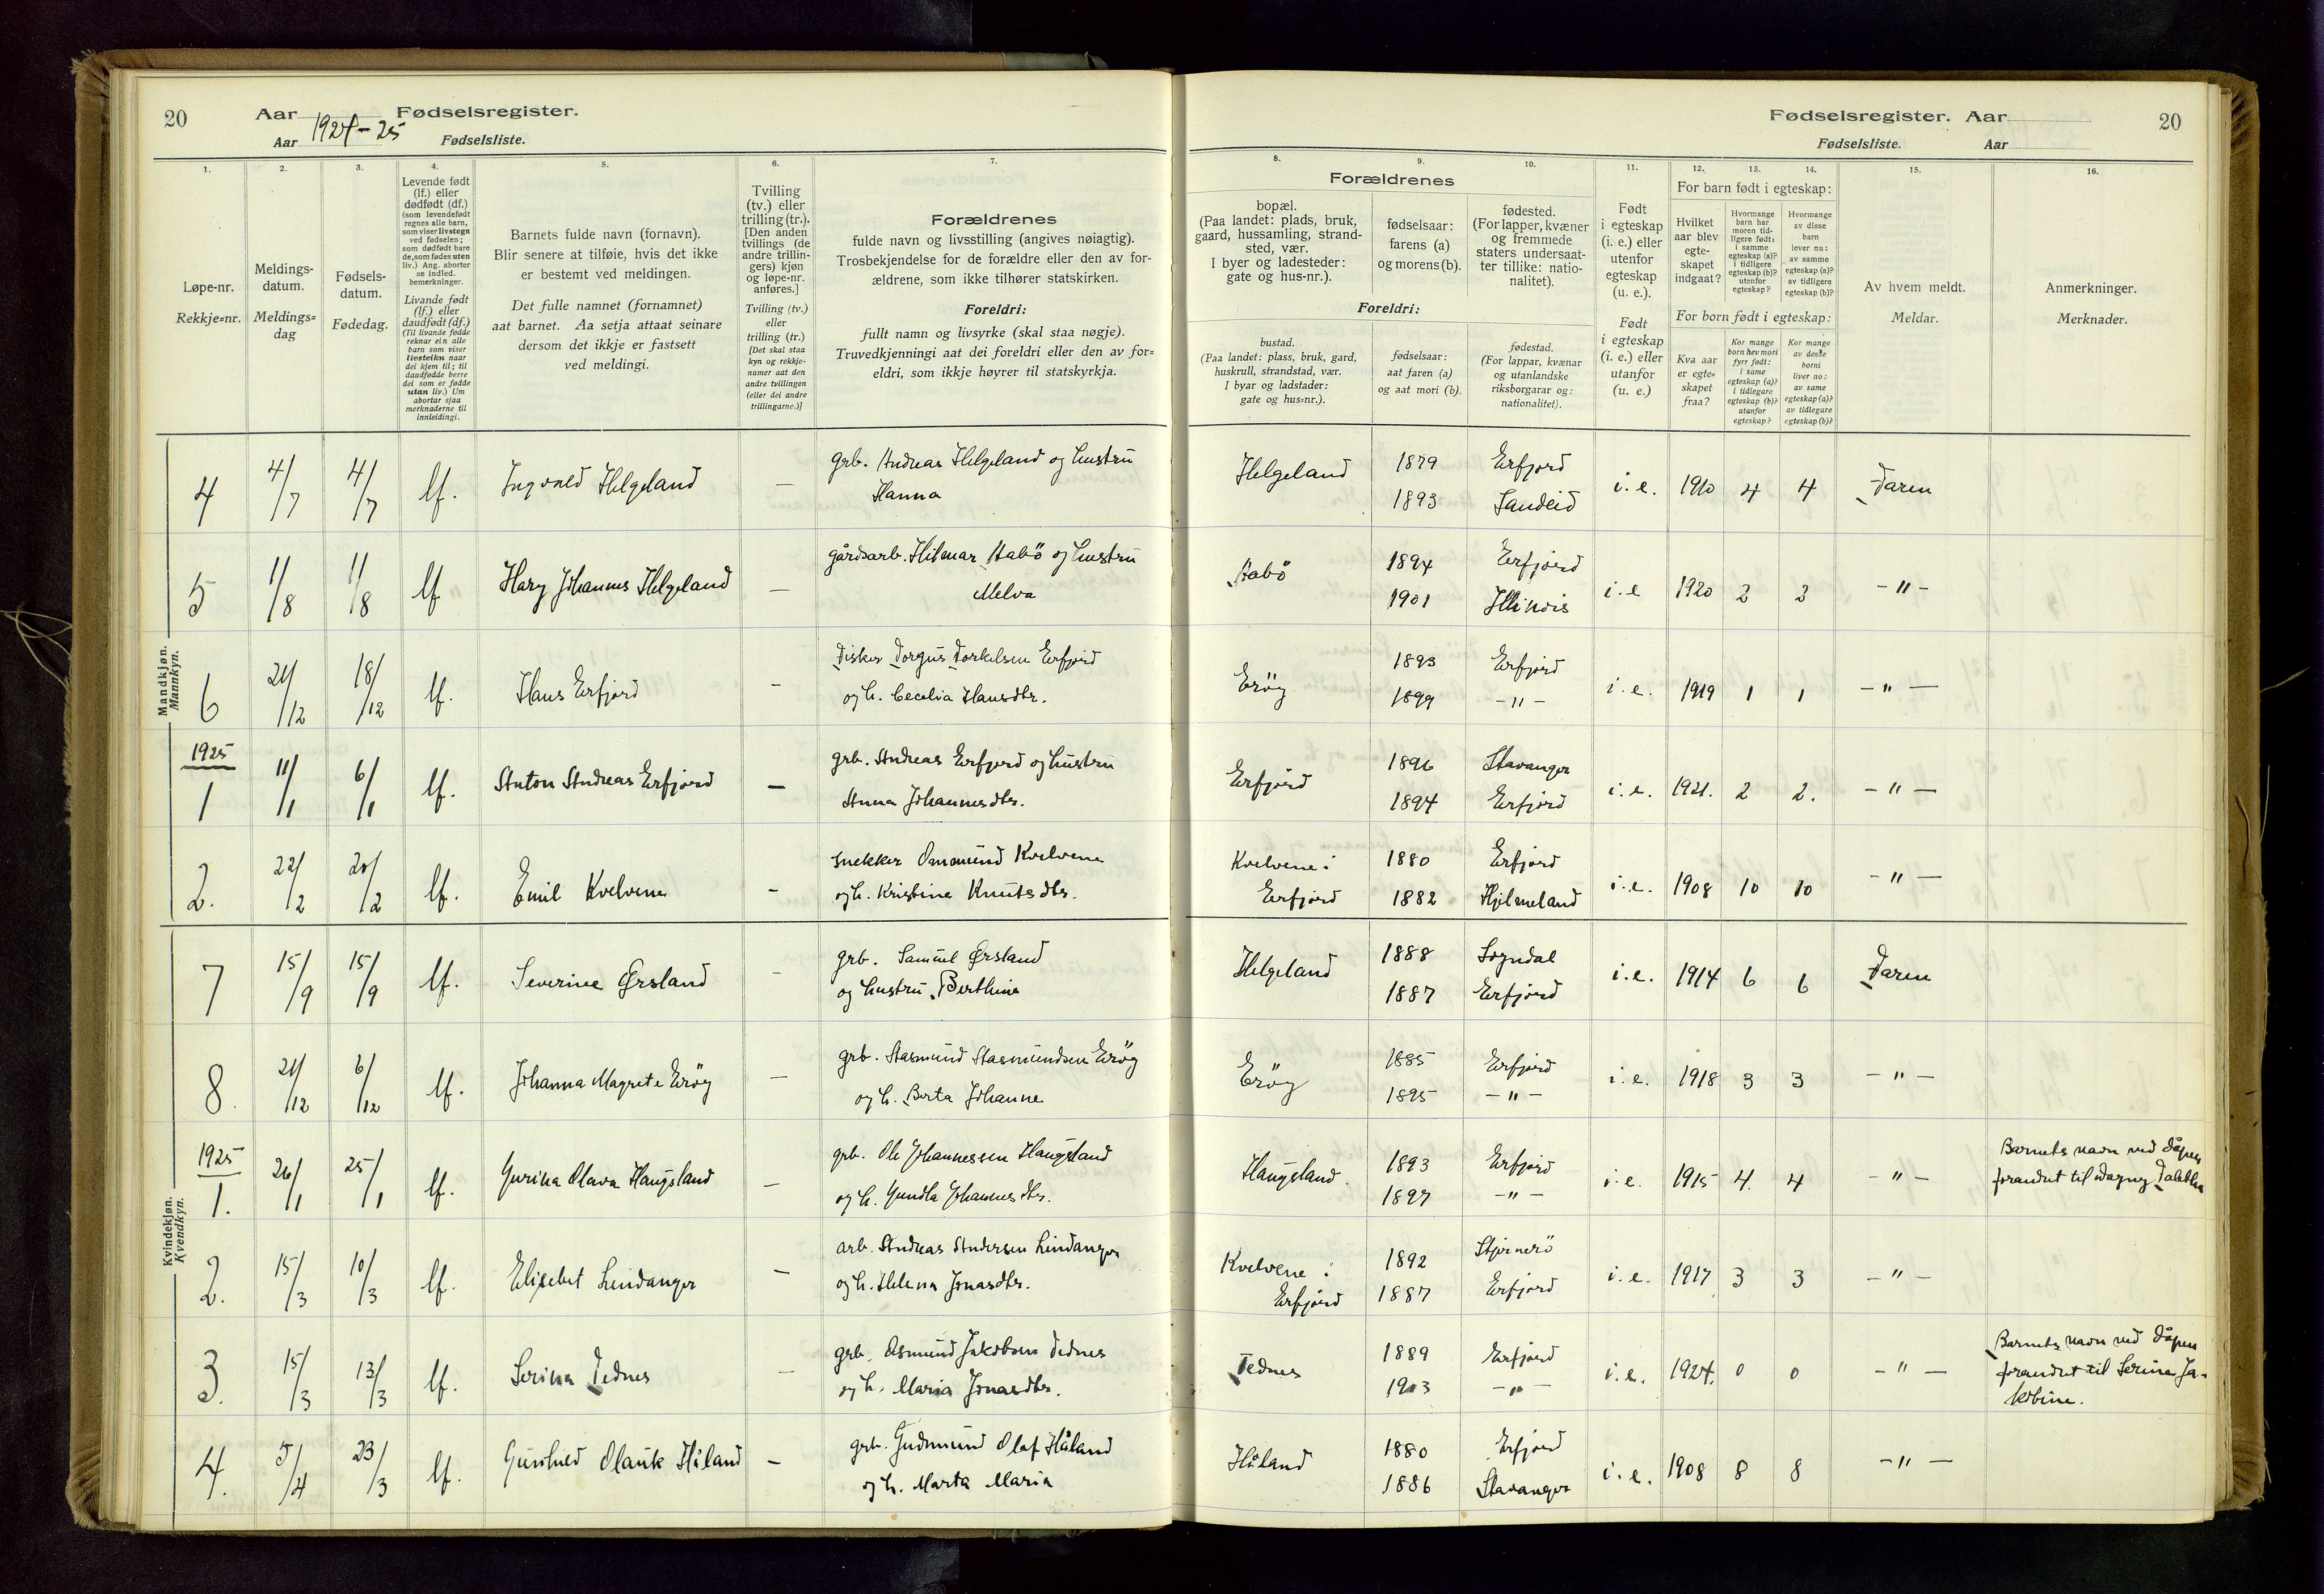 20
Aar 1924-25 Fødselsregister.
Aar Fødselsliste.
Fødselsregister. Aar
Fødselsliste. Aar
20
1.
Løpe-nr.
Rekkje=nr.
2.
Meldings-
datum.
Meldings=
dag
3.
Fødsels-
datum.
Fødedag.
4.
Levende født
(lf.) eller
dødfødt (df.)
(som levendefødt
regnes alle barn,
som viser livstegn
ved fødselen;
som dødfødt bare
de, som fødes uten
liv.) Ang. aborter
se indled.
bemerkninger.
Livande født
(lf.) eller
daudfødt (df.)
(Til livande fødde
reknar ein alle
born som viser
livsteikn naar
dei kjem til; til
daudfødde berre
dei som er fødde
utan liv.) Um
abortar sjaa
merknaderne til
innleidingi.
5.
Barnets fulde navn (fornavn).
Blir senere at tilføie, hvis det ikke
er bestemt ved meldingen.
Det fulle namnet (fornamnet)
aat barnet. Aa setja attaat seinare
dersom det ikkje er fastsett
ved meldingi.
6.
Tvilling
(tv.) eller
trilling (tr.).
[Den anden
tvillings (de
andre trillin-
gers) kjøn
og løpe-nr.
anføres.]
Tvilling (tv.)
eller
trilling (tr.)
[Det skal staa
kyn og rekkje-
numer aat den
andre tvillingen
(eller dei andre
trillingarne.)]
7.
Forældrenes
fulde navn og livsstilling (angives nøiagtig).
Trosbekjendelse for de forældre eller den av for-
ældrene, som ikke tilhører statskirken.
Foreldri:
fullt namn og livsyrke (skal staa nøgje).
Truvedkjenningi aat dei foreldri eller den av for=
eldri, som ikkje høyrer til statskyrkja.
Forældrenes
8.
bopæl.
(Paa landet: plads, bruk,
gaard, hussamling, strand-
sted, vær.
I byer og ladesteder:
gate og hus-nr.).
9.
fødselsaar:
farens (a)
og morens (b).
10.
fødested.
(For lapper, kvæner
og fremmede
staters undersaat-
ter tillike: natio-
nalitet).
Foreldri:
bustad.
(Paa landet: plass, bruk, gard,
huskrull, strandstad, vær.
I byar og ladstader:
gate og hus=nr.).
fødselsaar:
aat faren (a)
og aat mori (b).
fødestad.
(For lappar, kvænar
og utanlandske
riksborgarar og:
nationalitet).
11.
Født
i egteskap
(i. e.) eller
utenfor
egteskap
(u. e.).
Født
i egteskap
(i. e.) eller
utanfor
(u. e.)
12. 13. 14.
For barn født i egteskap:
Hvilket
aar blev
egte-
skapet
indgaat?
Hvormange
barn har
moren tid-
ligere født:
i samme
egteskap (a)?
i tidligere
egteskap (b)?
utenfor
egteskap?
Hvormange
av disse
barn
lever nu:
av samme
egteskap (a)?
av tidligere
egteskap (b)?
For born født i egteskap:
Kva aar
er egte=
skapet
fraa?
Kor mange
born hev mori
fyrr født:
i same
egteskap (a)?
i tidlegare
egteskap (b)?
utanfor
egteskap?
Kor mange
av desse
borni
liver no:
av same
egteskap (a)?
av tidlegare
egteskap (b)?
15.
Av hvem meldt.
Meldar.
16.
Anmerkninger.
Merknader.
Mandkjøn.
Mannkyn.
4 4/7 4/7 lf. Ingvald Helgeland — grb. Andreas Helgeland og hustru
Hanna
Helgeland 1879 Erfjord
1893 Sandeid
i. e. 1910 4 4 Faren
5 11/8 11/8 lf Hary Johannes Helgeland — gårdsarb. Hilmar Aabö og hustru
Melva
Aabö 1894 Erfjord
1901 Illinois
i. e 1920 2 2 -"-
6 21/12 18/12 lf. Hans Erfjord - Fisker Torgus Torkelsen Erfjord
og h. Cecelia Hansdtr.
Eröy 1893 Erfjord
1899 -"-
i. e. 1919 1 1 -"-
1925
1 11/1 6/1 lf. Anton Andreas Erfjord — grb. Andreas Erfjord og hustru
Anna Johannesdtr.
Erfjord 1896 Stavanger
1894 Erfjord
i. e. 1921. 2 2. -"-
2. 22/2 20/2 lf. Emil Kvelvene - snekker Omomund Kvelvene
og h. Kristine Knutsdtr.
Kvelvene i 1880 Erfjord
Erfjord 1882 Hjelmeland
i. e. 1908 10 10 -"-
Kvindekjøn.
Kvendkyn.
7 15/9 15/9 lf. Severine Ørsland - grb. Samuel Ørsland
og hustru Berthine
Helgeland 1888 Sogndal
1887 Erfjord
i. e. 1914 6 6 Faren
8. 21/12 6/12 lf. Johanna Magrete Eröy — grb. Aasmund Aasmundsen Eröy
og h. Berta Johanne
Eröy 1885 Erfjord
1895 -"-
i. e. 1918 3 3 -"-
1925
1. 26/1 25/1 lf. Gurina Olava Haugsland — grb. Ole Johannessen Haugsland
og h. Gundla Johannesdtr.
Haugsland. 1893 Erfjord
1897 -"-
i. e. 1915 4. 4 -"-
Barnets navn ved dåpen
forandret til Dagny Tabitha
2. 15/3 10/3 lf. Elisebet Lindanger — arb. Andreas Andersen Lindanger
og h. Helena Jonasdtr.
Kvelvene i 1892 Stjernerö
Erfjord 1887 Erfjord
i. e. 1917 3 3 -"-
3. 15/3 13/3 lf. Serina Tednes - grb. Osmund Jakobsen Tednes
og h. Maria Jonasdtr.
Tednes 1889 Erfjord
1903 -"-
i. e. 1924. 0 0 -"-
Barnets navn ved dåpen
forandret til Serine Ja-
kobine.
4. 5/4 23/3 lf. Gunhild Olauk Håland - grb. Gudmund Olaf Håland
og h. Marta Maria
Håland 1880 Erfjord
1886 Stavanger
i. e. 1908 8 8 -"-